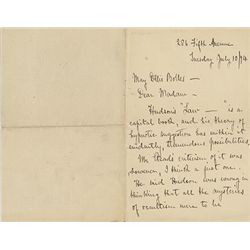 206 Fifth Avenue
Tuesday July 10/94
May Ellis Bolles —
Dear Madam —
Hudson's "Law — " is a
capital book, and his theory of
hypnotic suggestion has within it
evidently, tremendous possibilities.
Mr Stead's criticism of it was
however, I think a just one.
He said Hudson was wrong in
thinking that all the mysteries
of occultism were to be